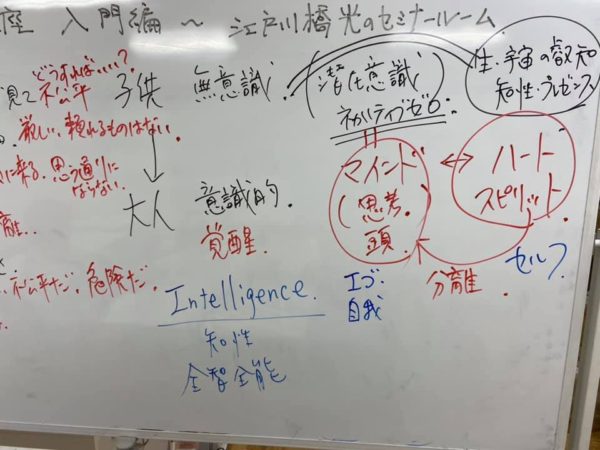 座 入門編 ~ 江戸川橋光のセミナールーム
どうすれば‥‥い?
見て 不公平 子供 無意識 (潜在意識)
ネガティブゼロ.
性・宇宙の叡知
知性・プレゼンス
厳しい. 頼れるものはない.
に来る. 思う通りに
ならない.
マインド ↔ ハート
(思考. スピリット.
頭.
大人 意識的.
覚醒.
離.
不公平だ. 危険だ.
Intelligence.
エゴ.
自我
分離.
セルフ
知性
全智全能